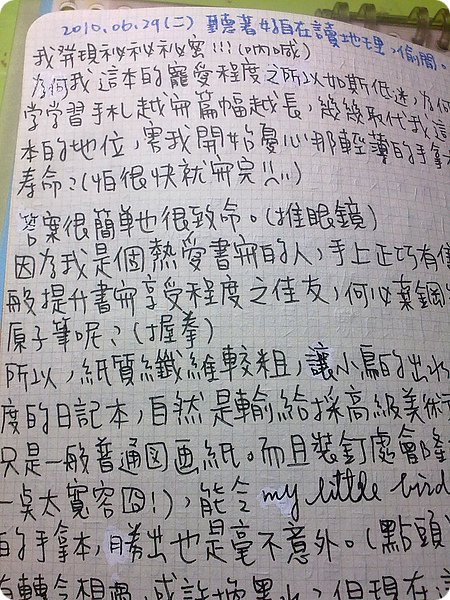 2010.06.29(二) 聽著好自在讀地理,偷閒。
我發現祕祕祕密!!!(吶喊)
為何我這本的寵愛程度之所以如斯低迷,為何
學學習手札越寫篇幅越長,幾幾取代我這
本的地位,害我開始憂心那輕薄的手拿本
壽命?(怕很快就寫完!!!)
答案很簡單也很致命。(推眼鏡)
因為我是個熱愛書寫的人,手上正巧有
般提升書寫享受程度之佳友,何必棄鋼
原子筆呢?(握拳)
所以,紙質纖維較粗,讓小鳥的出水
度的日記本,自然是輸給採高級美術
只是一般普通図画紙。而且裝釘處會隆
一桌太寬容囧!),能令my little bird
的手拿本,勝出也是毫不意外。(點頭)
或許換墨水?但現在